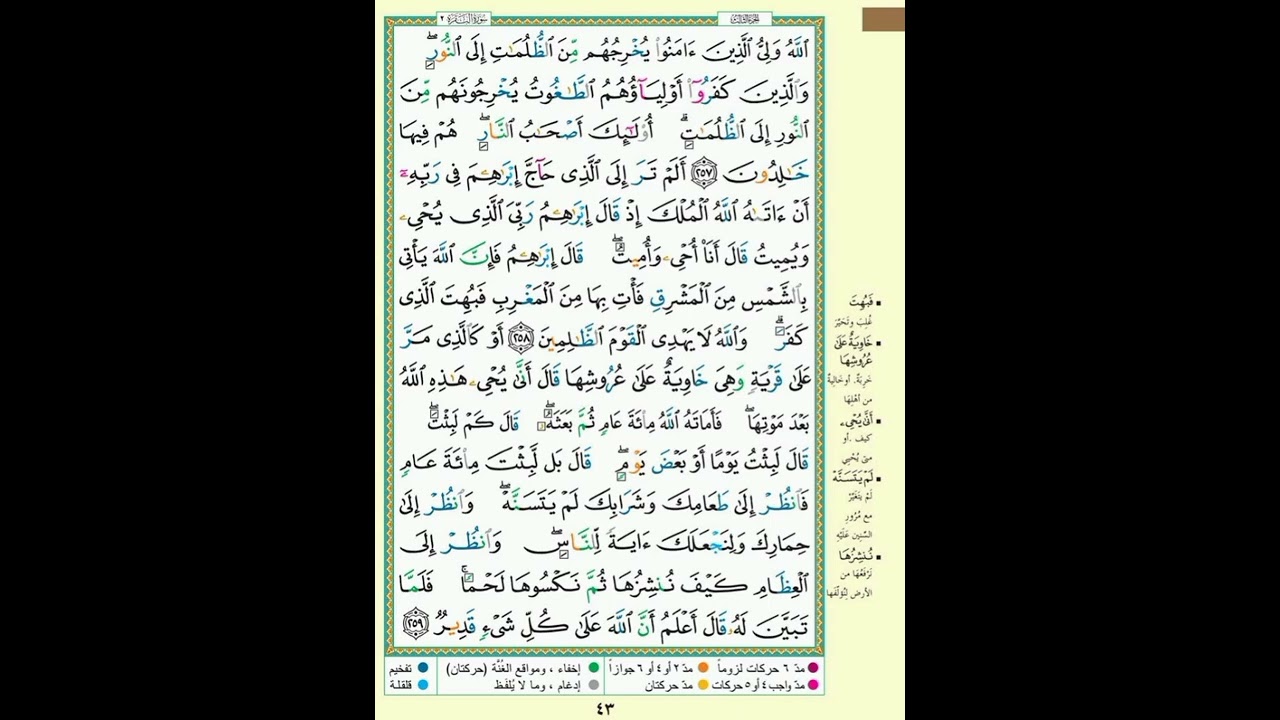 الجزء الثالث
سورة البقرة ٢
ٱللَّهُ وَلِيُّ ٱلَّذِينَ ءَامَنُوا۟ يُخْرِجُهُم مِّنَ ٱلظُّلُمَٰتِ إِلَى ٱلنُّورِۖ
وَٱلَّذِينَ كَفَرُوٓا۟ أَوْلِيَآؤُهُمُ ٱلطَّٰغُوتُ يُخْرِجُونَهُم مِّنَ
ٱلنُّورِ إِلَى ٱلظُّلُمَٰتِۗ أُو۟لَٰٓئِكَ أَصْحَٰبُ ٱلنَّارِۖ هُمْ فِيهَا
خَٰلِدُونَ ٢٥٧ أَلَمْ تَرَ إِلَى ٱلَّذِى حَآجَّ إِبْرَٰهِۦمَ فِى رَبِّهِۦٓ
أَنْ ءَاتَىٰهُ ٱللَّهُ ٱلْمُلْكَ إِذْ قَالَ إِبْرَٰهِۦمُ رَبِّىَ ٱلَّذِى يُحْىِۦ
وَيُمِيتُ قَالَ أَنَا۠ أُحْىِۦ وَأُمِيتُۖ قَالَ إِبْرَٰهِۦمُ فَإِنَّ ٱللَّهَ يَأْتِى
بِٱلشَّمْسِ مِنَ ٱلْمَشْرِقِ فَأْتِ بِهَا مِنَ ٱلْمَغْرِبِ فَبُهِتَ ٱلَّذِى
كَفَرَۗ وَٱللَّهُ لَا يَهْدِى ٱلْقَوْمَ ٱلظَّٰلِمِينَ ٢٥٨ أَوْ كَٱلَّذِى مَرَّ
عَلَىٰ قَرْيَةٍ وَهِىَ خَاوِيَةٌ عَلَىٰ عُرُوشِهَا قَالَ أَنَّىٰ يُحْىِۦ هَٰذِهِ ٱللَّهُ
بَعْدَ مَوْتِهَاۖ فَأَمَاتَهُ ٱللَّهُ مِا۟ئَةَ عَامٍ ثُمَّ بَعَثَهُۥۖ قَالَ كَمْ لَبِثْتَۖ
قَالَ لَبِثْتُ يَوْمًا أَوْ بَعْضَ يَوْمٍۖ قَالَ بَل لَّبِثْتَ مِا۟ئَةَ عَامٍ
فَٱنظُرْ إِلَىٰ طَعَامِكَ وَشَرَابِكَ لَمْ يَتَسَنَّهْۖ وَٱنظُرْ إِلَىٰ
حِمَارِكَ وَلِنَجْعَلَكَ ءَايَةً لِّلنَّاسِۖ وَٱنظُرْ إِلَى
ٱلْعِظَامِ كَيْفَ نُنشِزُهَا ثُمَّ نَكْسُوهَا لَحْمًاۚ فَلَمَّا
تَبَيَّنَ لَهُۥ قَالَ أَعْلَمُ أَنَّ ٱللَّهَ عَلَىٰ كُلِّ شَىْءٍ قَدِيرٌ ٢٥٩
فَبُهِتَ
غُلِبَ وتَحَيَّر
خَاوِيَةٌ عَلَىٰ
عُرُوشِهَا
خَرِبَةٌ. أو خاليةٌ
من أهْلِها
أَنَّىٰ يُحْىِۦ
كيف. أو
متى يُحْيي
لَمْ يَتَسَنَّهْ
لم يَتَغَيَّرْ
مع مُرُورِ
السِّنين عَلَيْهِ
نُنشِزُهَا
نَرْفَعُهَا من
الأرض لنُؤلِّفَها
مدّ ٦ حركات لزوماً
مدّ ٢ أو ٤ أو ٦ جوازاً
إخفاء ، ومواقع الغُنَّة (حركتان)
تفخيم
مدّ واجب ٤ أو ٥ حركات
مدّ حركتان
إدغام ، وما لا يُلفَظ
قلقلة
٤٣